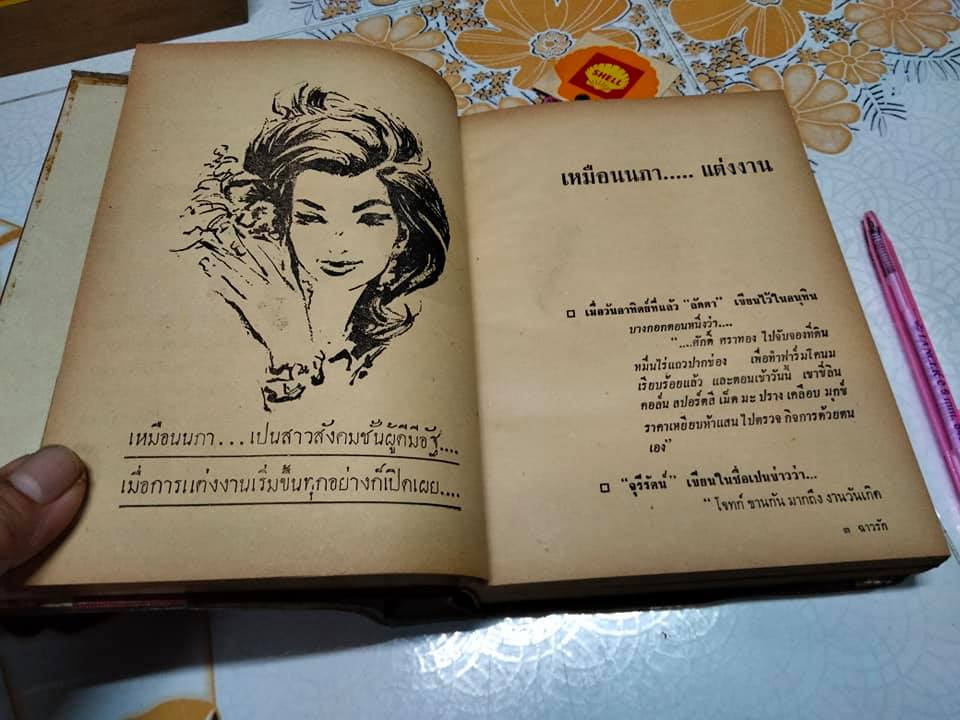 SHELL
เหมือนนภา...เป็นสาวสังคมชั้นผู้ดีมีอัฐ....
เมื่อการแต่งงานเริ่มขึ้นทุกอย่างก็เปิดเผย....
เหมือนนภา..... แต่งงาน
เมื่อวันอาทิตย์ที่แล้ว "ลัดดา" เขียนไว้ในอนุทิน
บางกอกตอนหนึ่งว่า....
"....ศักดิ์ ศราทอง ไปจับจองที่ดิน
หมื่นไร่แถวปากช่อง เพื่อทำฟาร์มโคนม
เรียบร้อยแล้ว และตอนเช้าวันนี้ เขาขี่ลิน
คอล์น สปอร์ตสี เม็ด มะ ปราง เคลือบ มุกข์
ราคาเหยียบห้าแสน ไปตรวจ กิจการด้วยตน
เอง"
"จุรีรัตน์" เขียนในชื่อเป็นข่าวว่า...
"โจทก์ ขานกัน มากถึง งานวันเกิด
๓ ฉาวรัก